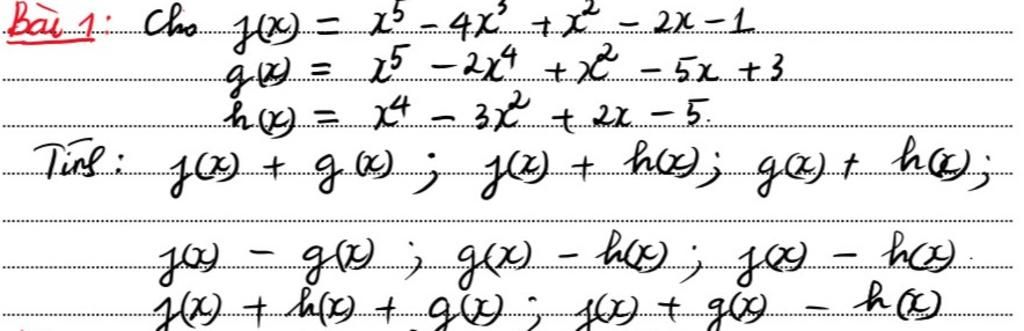 Bài 1: Cho f(x) = x⁵ - 4x³ + x² - 2x - 1
g(x) = x⁵ - 2x⁴ + x² - 5x + 3
h(x) = x⁴ - 3x² + 2x - 5.
Tính: f(x) + g(x) ; f(x) + h(x); g(x) + h(x);
f(x) - g(x) ; g(x) - h(x) ; f(x) - h(x).
f(x) + h(x) + g(x) ; f(x) + g(x) - h(x)